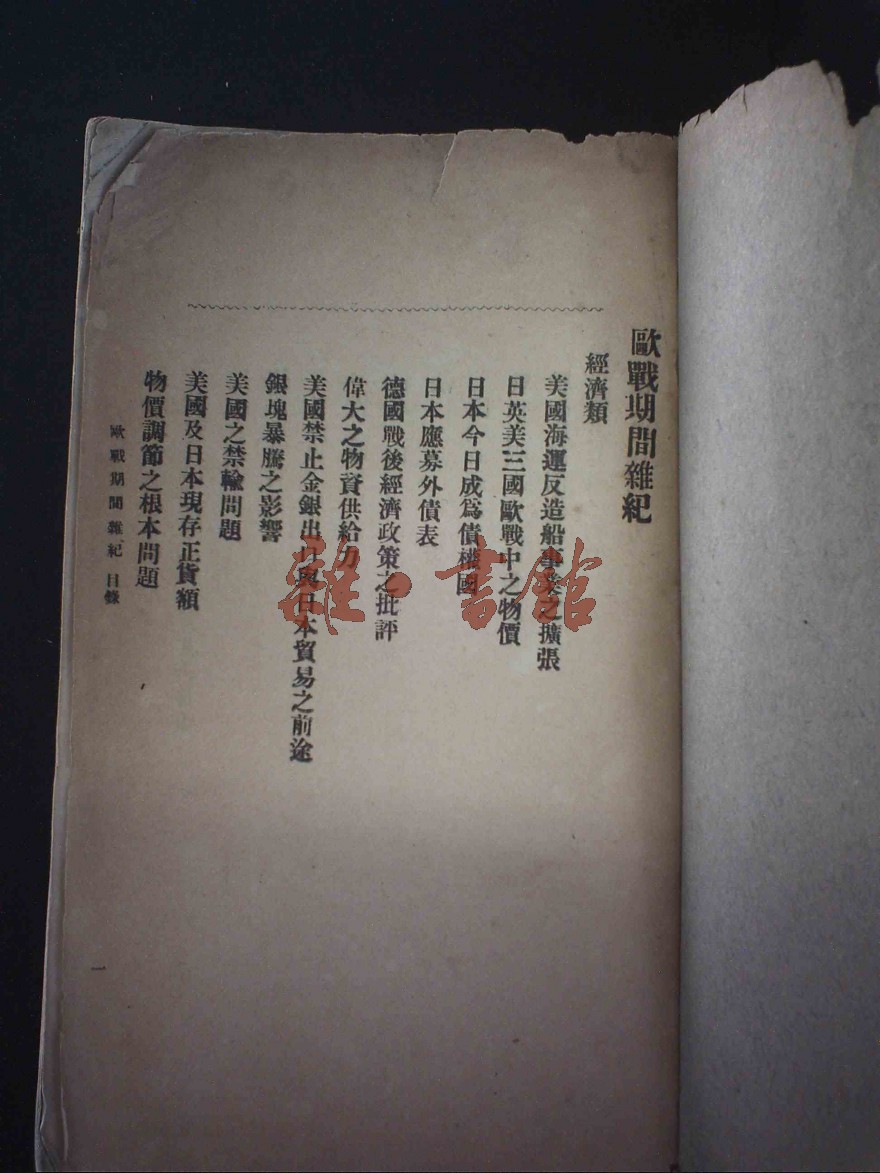 歐戰期間雜紀
經濟類
美國海運及造船事業之擴張
日英美三國歐戰中之物價
日本今日成爲債權國
日本應募外債表
德國戰後經濟政策之批評
偉大之物資供給力
美國禁止金銀出口與日本貿易之前途
銀塊暴騰之影響
美國之禁輸問題
美國及日本現存正貨額
物價調節之根本問題
歐戰期間雜紀 目錄
一
雜·書館